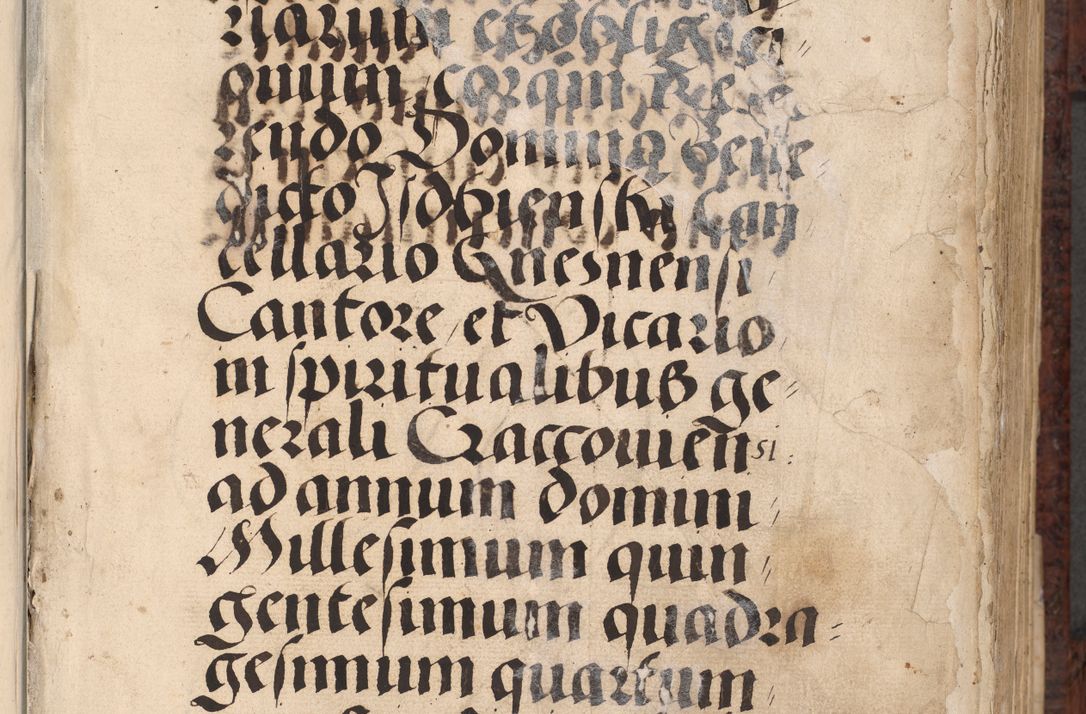 narum et obliga
onum corqm Re
rendo Domino Bene
dicto Isdbienski Can
cellario Gnesnensi
Cantore et Vicario
in spiritualibus ge
nerali Craccovien si
ad annum domini
Millesimum quin
gentesimum quadra
gesimum quartum